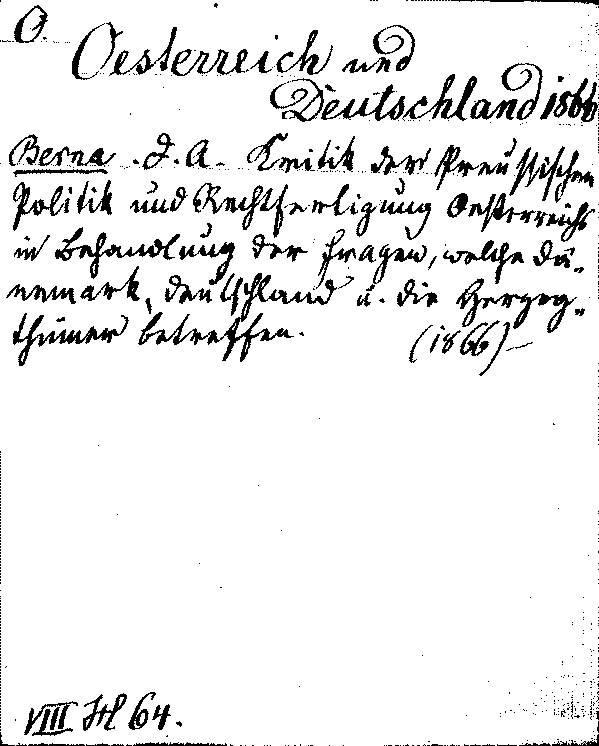 O.
Oesterreich und
Deutschland 1866
Berna. J. A. Kritik der Preussischen
Politik und Rechtfertigung Oesterreichs
in Behandlung der Fragen, welche Dä-
nemark, Deutschland u. die Herzog-
thümer betreffen. (1866) –
VIII H 64.